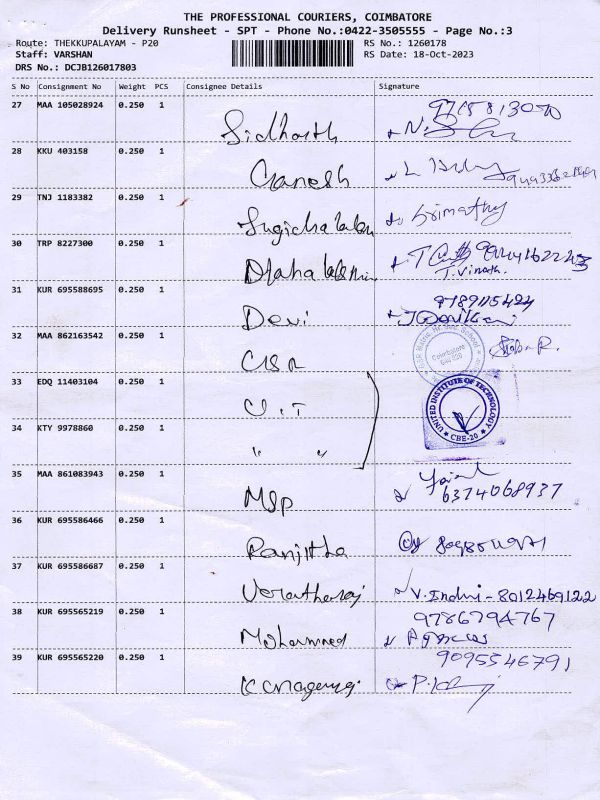 THE PROFESSIONAL COURIERS, COIMBATORE
Delivery Runsheet - SPT - Phone No.:0422-3505555 - Page No.:3
Route: THEKKUPALAYAM - P20
RS No.: 1260178
Staff: VARSHAN
RS Date: 18-Oct-2023
DRS No.: DCJB126017803
S No Consignment No Weight PCS Consignee Details Signature
27 MAA 105028924 0.250 1
Sidharth
28 KKU 403158 0.250 1
Ganesh
29 TNJ 1183382 0.250 1
Srimathy
30 TRP 8227300 0.250 1
T. Vinoth.
31 KUR 695588695 0.250 1
Devi
32 MAA 862163542 0.250 1
Coimbatore
33 EDQ 11403104 0.250 1
UNITED INSTITUTE OF TECHNOLOGY
CBE-20
34 KTY 9978860 0.250 1
" "
35 MAA 861083943 0.250 1
MSP 6374068937
36 KUR 695586466 0.250 1
Ranjitha
37 KUR 695586687 0.250 1
V. Indhu - 8012469122
38 KUR 695565219 0.250 1
9786794767
Mohammed
39 KUR 695565220 0.250 1
9095546791